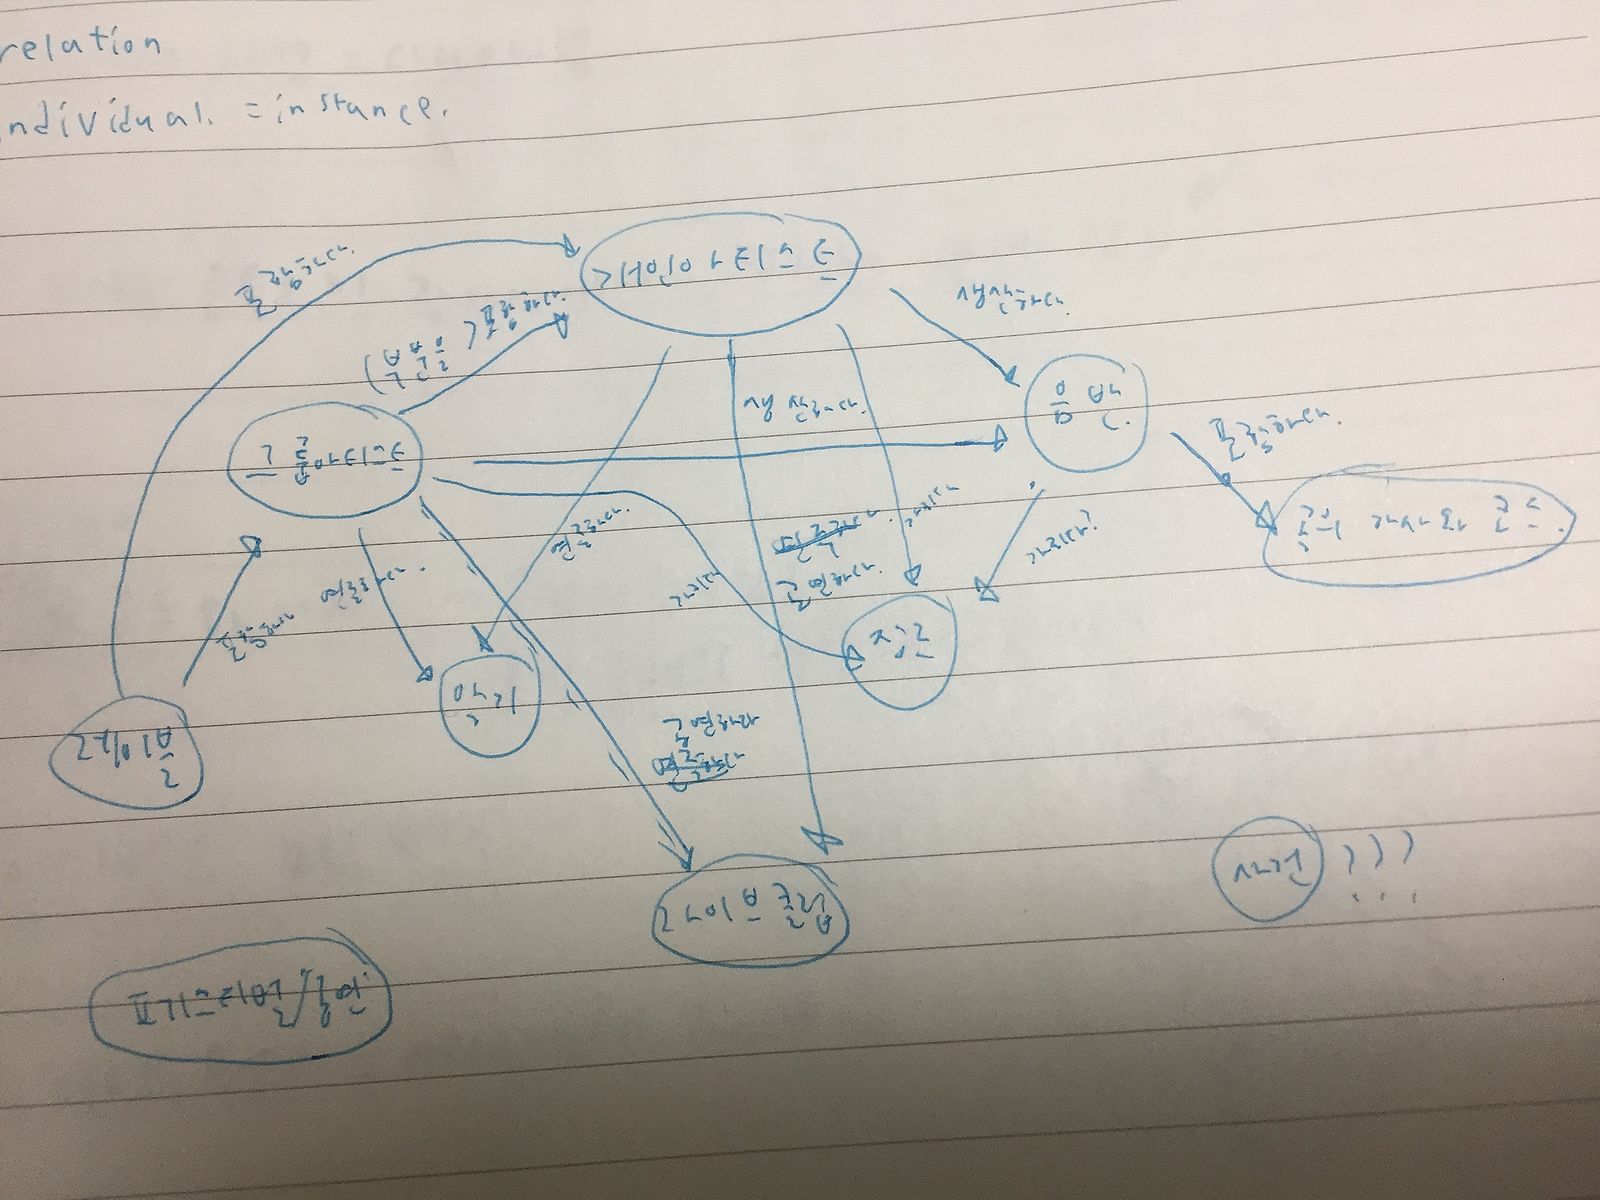 relation
individual. = instance.
포함하다.
개인아티스트
(부분을) 포함하다.
생산하다.
음반.
생산하다.
그룹아티스트
포함하다.
곡의 가사와 코드.
연주하다.
연주하다.
공연하다.
가지다
가지다?
포함하다
연주하다.
가지다
장르
악기
레이블
공연하다
연주하다
라이브클럽
사건 ???
페스티벌/공연